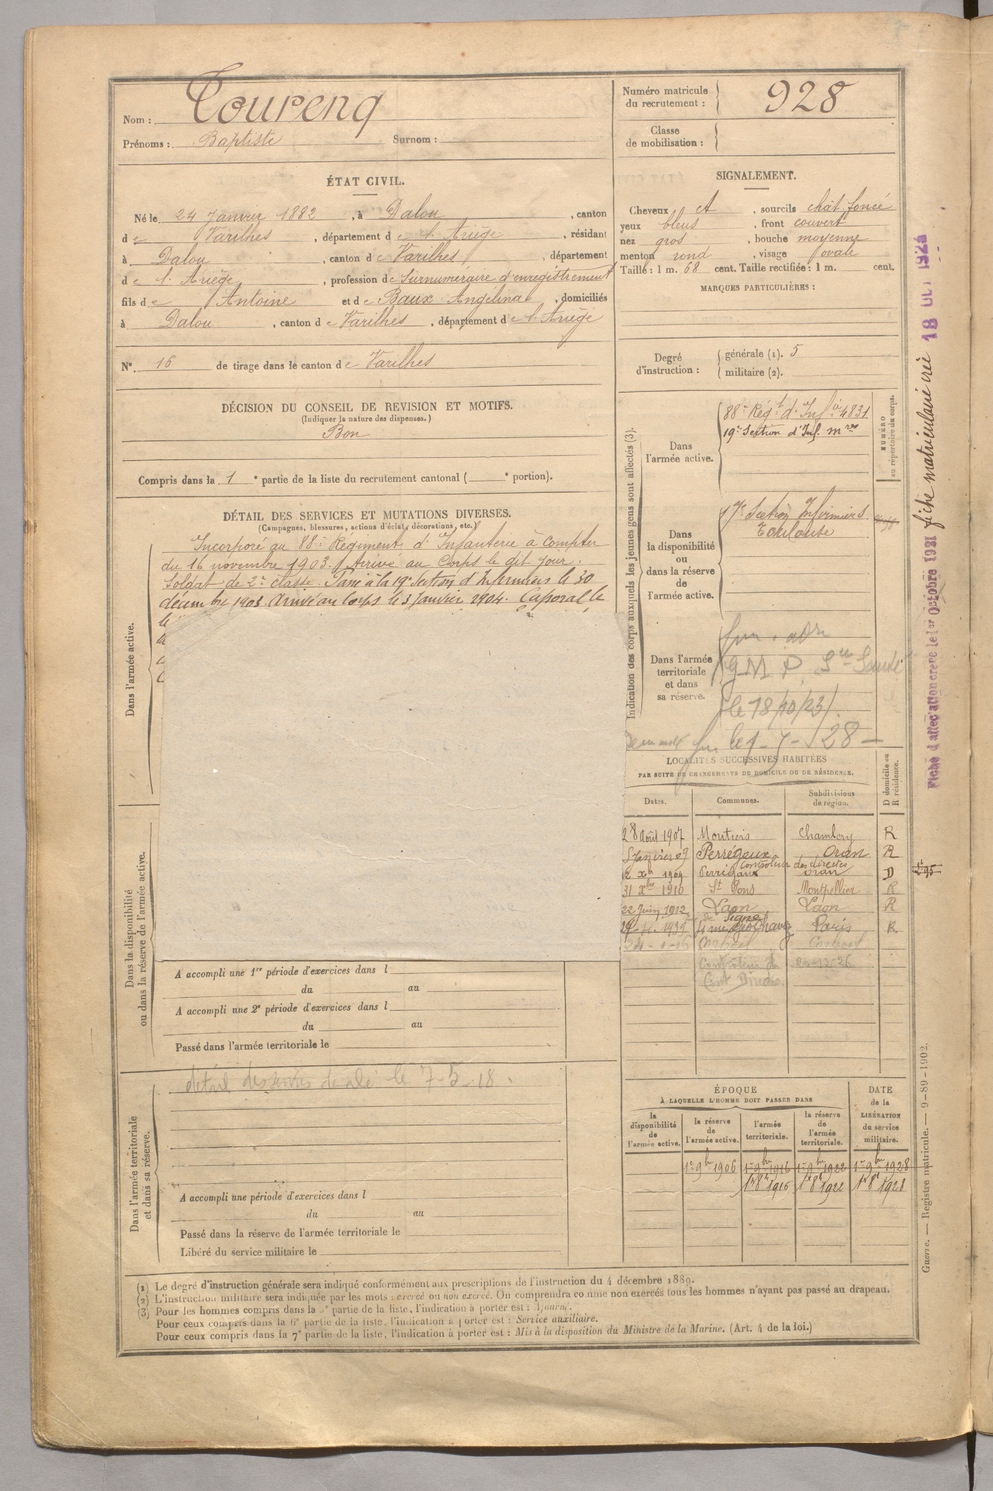 Nom : Tourenq
Prénoms : Baptiste Surnom :
Numéro matricule du recrutement : 928
Classe de mobilisation :
ÉTAT CIVIL.
Né le 24 Janvier 1882, à Dalou, canton
de Varilhes, département de l'Ariège, résidant
à Dalou, canton de Varilhes, département
de l'Ariège, profession de Surnuméraire d'enregistrement
fils de Antoine et de Baux Angelina, domiciliés
à Dalou, canton de Varilhes, département de l'Ariège
N° 16 de tirage dans le canton de Varilhes
DÉCISION DU CONSEIL DE REVISION ET MOTIFS.
(Indiquer la nature des dispenses.)
Bon
Compris dans la 1e partie de la liste du recrutement cantonal ( e portion).
DÉTAIL DES SERVICES ET MUTATIONS DIVERSES.
(Campagnes, blessures, actions d'éclat, décorations, etc.)
Dans l'armée active.
Incorporé au 88e Régiment d'Infanterie à compter
du 16 novembre 1903. Arrivé au Corps le dit jour.
Soldat de 2e classe. Passé à la 19e Section d'Infirmiers le 30
décembre 1903 Arrivé au Corps le 3 Janvier 1904. Caporal le
Dans la disponibilité ou dans la réserve de l'armée active.
A accompli une 1re période d'exercices dans l
du au
A accompli une 2e période d'exercices dans l
du au
Passé dans l'armée territoriale le
Dans l'armée territoriale et dans sa réserve.
le 7-5-18.
A accompli une période d'exercices dans l
du au
Passé dans la réserve de l'armée territoriale le
Libéré du service militaire le
SIGNALEMENT.
Cheveux et, sourcils chât foncé
yeux bleus, front couvert
nez gros, bouche moyenne
menton rond, visage ovale
Taille : 1 m. 68 cent. Taille rectifiée : 1 m. cent.
MARQUES PARTICULIÈRES :
Degré d'instruction : générale (1). 5
militaire (2).
Indication des corps auxquels les jeunes gens sont affectés (3).
NUMÉRO au répertoire du corps.
Dans l'armée active.
88e Régt d'Infie 4831
19e Section d'Inf. mres
Dans la disponibilité ou dans la réserve de l'armée active.
17e Section Infirmiers
Toulouse
Dans l'armée territoriale et dans sa réserve.
G M P Sce Santé
le 18/10/23
le 1-7-28
LOCALITÉS SUCCESSIVES HABITÉES
PAR SUITE DE CHANGEMENTS DE DOMICILE OU DE RÉSIDENCE.
Dates. Communes. Subdivisions de région. D domicile ou R résidence.
28 Août 1907 Moutiers Chambéry R
5 Janvier 09 Perrégaux Oran R
2 Xbre 1909 Perrégaux Oran D
31 Xbre 1910 St Pons Montpellier R
22 Juin 1912 Laon Laon R
Paris R
ÉPOQUE
À LAQUELLE L'HOMME DOIT PASSER DANS
la disponibilité de l'armée active. la réserve de l'armée active. l'armée territoriale. la réserve de l'armée territoriale. DATE de la LIBÉRATION du service militaire.
1er 9bre 1906 1er 9bre 1916 1er 9bre 1922 1er 9bre 1928
1er 8bre 1916 1er 8bre 1922 1er 8bre 1928
Fiche d'affectation créée le 1er Octobre 1921 fiche matriculaire crée 18 OCT 1923
Guerre. — Registre matricule. — 9-89-1902.
(1) Le degré d'instruction générale sera indiqué conformément aux prescriptions de l'instruction du 4 décembre 1889.
(2) L'instruction militaire sera indiquée par les mots : exercé ou non exercé. On comprendra comme non exercés tous les hommes n'ayant pas passé au drapeau.
(3) Pour les hommes compris dans la 5e partie de la liste, l'indication à porter est : Ajourné.
Pour ceux compris dans la 6e partie de la liste, l'indication à porter est : Service auxiliaire.
Pour ceux compris dans la 7e partie de la liste, l'indication à porter est : Mis à la disposition du Ministre de la Marine. (Art. 4 de la loi.)